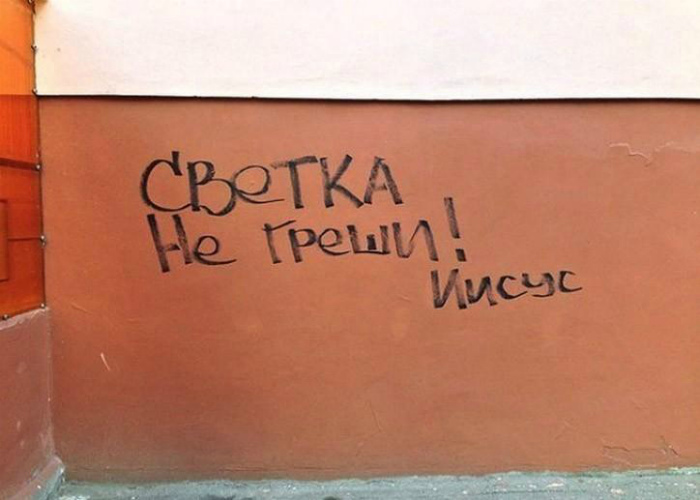 СВеТКА
Не Греши!
Иисус